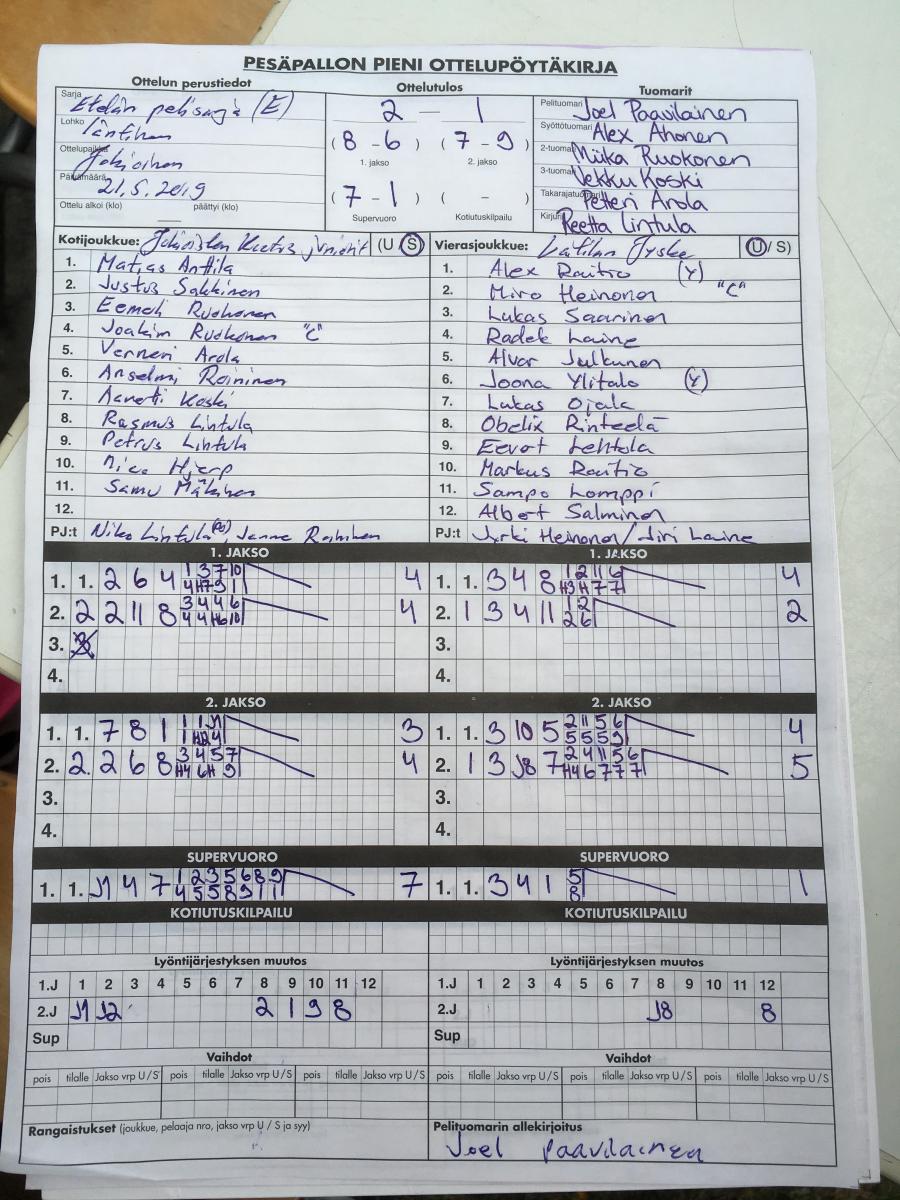 PESÄPALLON PIENI OTTELUPÖYTÄKIRJA
Ottelun perustiedot Ottelutulos Tuomarit
Sarja Etelän pelisarja (E)
Lohko läntinen
Ottelupaikka Jokioinen
Päivämäärä 21.5.2019
Ottelu alkoi (klo) päättyi (klo)
2 — 1
(8 - 6) (7 - 9)
1. jakso 2. jakso
(7 - 1) ( - )
Supervuoro Kotiutuskilpailu
Pelituomari Joel Paavilainen
Syöttötuomari Alex Ahonen
2-tuomari Miika Ruokonen
3-tuomari Vekku Koski
Takarajatuomari Petteri Arola
Kirjuri Reetta Lintula
Kotijoukkue: Jokioisten (U S)
1. Matias Anttila
2. Justus Sakkinen
3. Eemeli Ruokonen
4. Joakim Ruokonen "C"
5. Verneri Arola
6. Anselmi Roininen
7. Koski
8. Rasmus Lintula
9. Petrus Lintula
10. Hjerp
11. Samu Mäkinen
12.
PJ:t Niko Lintula, Janne
Vierasjoukkue: Laitilan Jyske (U/ S)
1. Alex Raitio (Y)
2. Miro Heinonen "C"
3. Lukas Saarinen
4. Radek Laine
5. Alvar Julkunen
6. Joona Ylitalo (Y)
7. Lukas Ojala
8. Obelix Rinteelä
9. Eevot Lehtola
10. Markus Raitio
11. Sampo Lomppi
12. Albert Salminen
PJ:t Jyrki Heinonen / Jiri Laine
1. JAKSO 1. JAKSO
1. 1. 2 6 4 1 3 7 10 4
4 H7 9 1
2. 2 2 11 8 3 4 4 6 4
4 4 H6 10
3.
4.
1. 1. 3 4 8 1 2 11 6 4
H3 H 7 7
2. 1 3 4 11 1 2 2
2 6
3.
4.
2. JAKSO 2. JAKSO
1. 1. 7 8 1 1 1 J1 3
1 H2 4
2. 2. 2 6 8 3 4 5 7 4
H4 6 H 9
3.
4.
1. 1. 3 10 5 2 11 5 6 4
5 5 5 9
2. 1 3 J8 7 2 4 11 5 6 5
H4 6 7 7 7
3.
4.
SUPERVUORO SUPERVUORO
1. 1. J1 4 7 1 2 3 5 6 8 9 7
4 5 5 8 9 1 1
1. 1. 3 4 1 5 1
8
KOTIUTUSKILPAILU KOTIUTUSKILPAILU
Lyöntijärjestyksen muutos Lyöntijärjestyksen muutos
1.J 1 2 3 4 5 6 7 8 9 10 11 12
2.J J1 J2 2 1 9 8
Sup
1.J 1 2 3 4 5 6 7 8 9 10 11 12
2.J J8 8
Sup
Vaihdot Vaihdot
pois tilalle Jakso vrp U/S pois tilalle Jakso vrp U/S pois tilalle Jakso vrp U/S
pois tilalle Jakso vrp U/S pois tilalle Jakso vrp U/S pois tilalle Jakso vrp U/S
Rangaistukset (joukkue, pelaaja nro, jakso vrp U / S ja syy)
Pelituomarin allekirjoitus
Joel Paavilainen